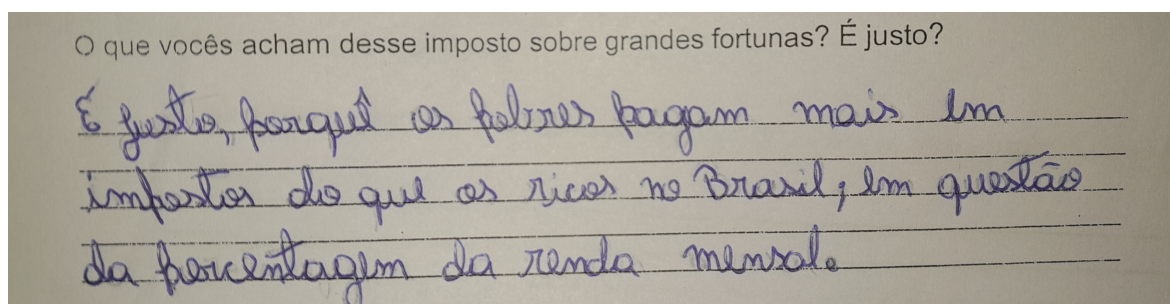 O que vocês acham desse imposto sobre grandes fortunas? É justo?
É justo, porquê os pobres pagam mais em
impostos do que os ricos no Brasil; em questão
da porcentagem da renda mensal.